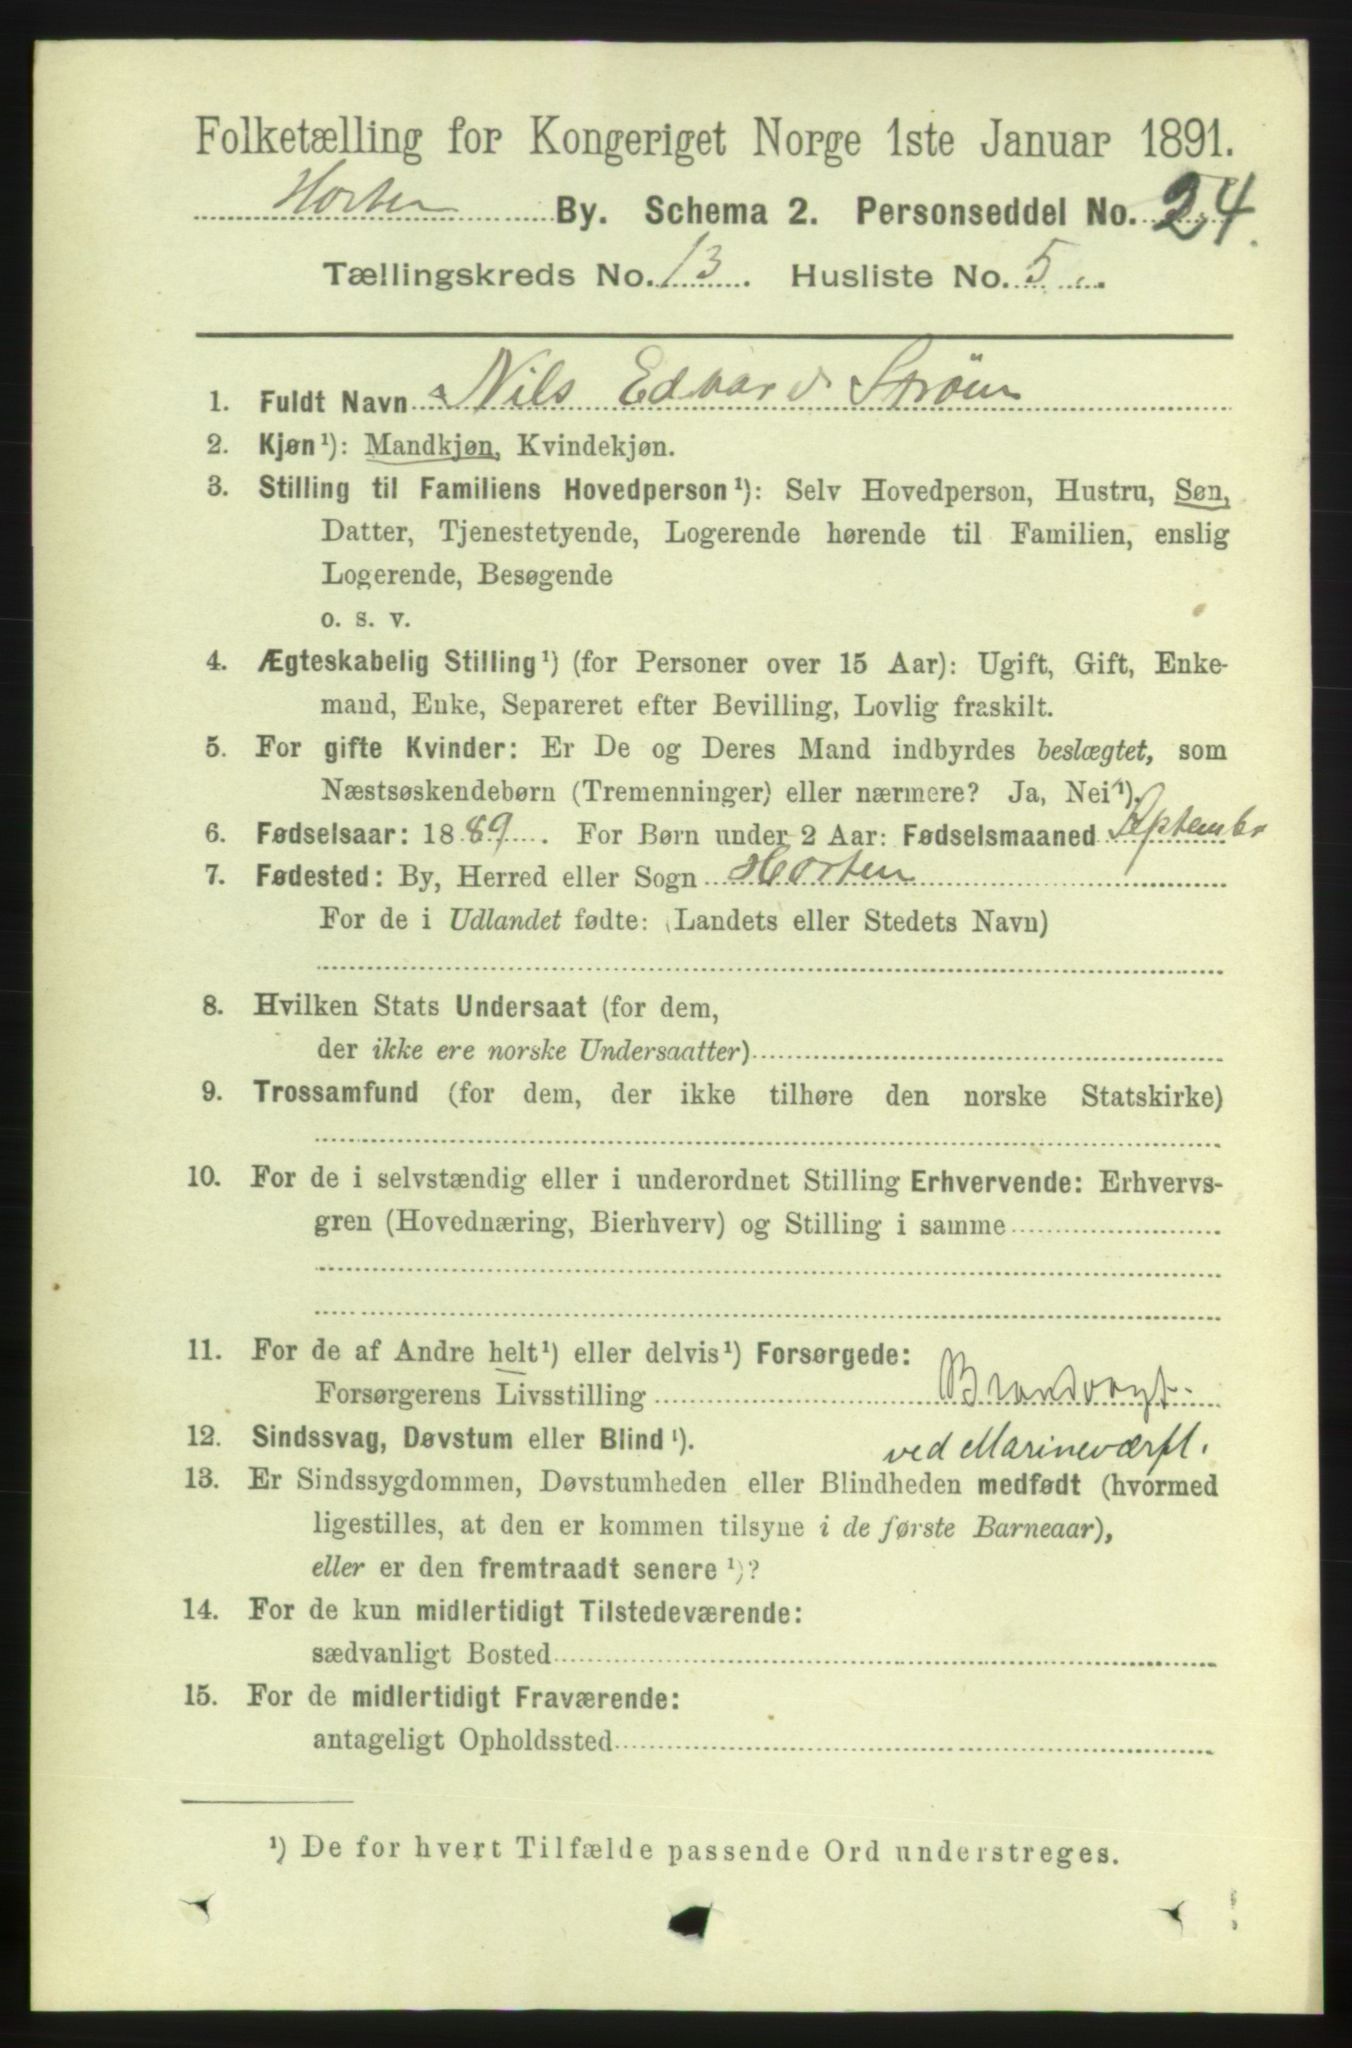 Folketælling for Kongeriget Norge 1ste Januar 1891.
Horten By. Schema 2. Personseddel No. 24.
Tællingskreds No. 13. Husliste No. 5.
1. Fuldt Navn Nils Edvard Strøm
2. Kjøn¹): Mandkjøn, Kvindekjøn.
3. Stilling til Familiens Hovedperson¹): Selv Hovedperson, Hustru, Søn,
Datter, Tjenestetyende, Logerende hørende til Familien, enslig
Logerende, Besøgende
o. s. v.
4. Ægteskabelig Stilling¹) (for Personer over 15 Aar): Ugift, Gift, Enke-
mand, Enke, Separeret efter Bevilling, Lovlig fraskilt.
5. For gifte Kvinder: Er De og Deres Mand indbyrdes beslægtet, som
Næstsøskendebørn (Tremenninger) eller nærmere? Ja, Nei¹).
6. Fødselsaar: 1889. For Børn under 2 Aar: Fødselsmaaned September
7. Fødested: By, Herred eller Sogn Horten
For de i Udlandet fødte: (Landets eller Stedets Navn)
8. Hvilken Stats Undersaat (for dem,
der ikke ere norske Undersaatter)
9. Trossamfund (for dem, der ikke tilhøre den norske Statskirke)
10. For de i selvstændig eller i underordnet Stilling Erhvervende: Erhvervs-
gren (Hovednæring, Bierhverv) og Stilling i samme
11. For de af Andre helt¹) eller delvis¹) Forsørgede:
Forsørgerens Livsstilling Brandvagt
12. Sindssvag, Døvstum eller Blind¹). ved Marineværft.
13. Er Sindssygdommen, Døvstumheden eller Blindheden medfødt (hvormed
ligestilles, at den er kommen tilsyne i de første Barneaar),
eller er den fremtraadt senere¹)?
14. For de kun midlertidigt Tilstedeværende:
sædvanligt Bosted
15. For de midlertidigt Fraværende:
antageligt Opholdssted
¹) De for hvert Tilfælde passende Ord understreges.